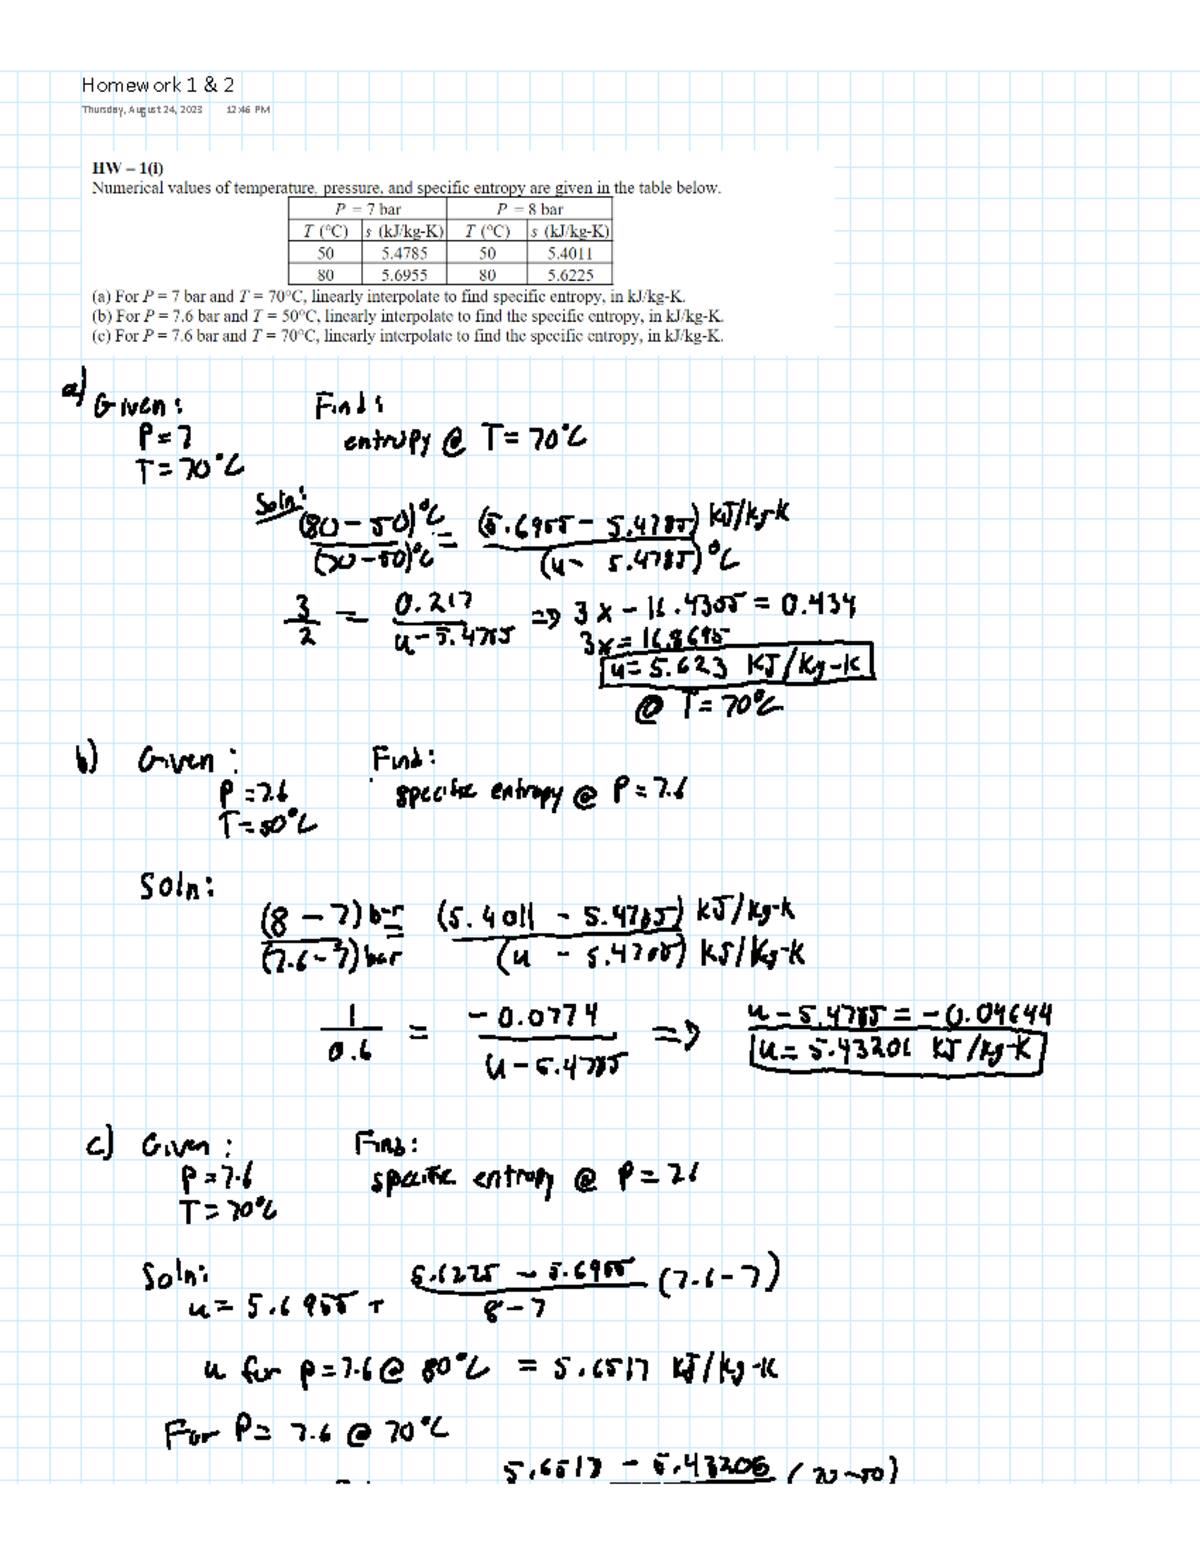 Homework 1 & 2
Thursday, August 24, 2023 12:46 PM
HW – 1(i)
Numerical values of temperature, pressure, and specific entropy are given in the table below.
P = 7 bar P = 8 bar
T (°C) s (kJ/kg-K) T (°C) s (kJ/kg-K)
50 5.4785 50 5.4011
80 5.6955 80 5.6225
(a) For P = 7 bar and T = 70°C, linearly interpolate to find specific entropy, in kJ/kg-K.
(b) For P = 7.6 bar and T = 50°C, linearly interpolate to find the specific entropy, in kJ/kg-K.
(c) For P = 7.6 bar and T = 70°C, linearly interpolate to find the specific entropy, in kJ/kg-K.
a) Given: Find:
P = 7 entropy @ T = 70°C
T = 70°C
Soln:
(80 - 50)°C = (5.6955 - 5.4785) kJ/kg-k
(70-50)°C (u - 5.4785)°C
3 = 0.217 => 3x - 16.4355 = 0.434
2 u - 5.4785 3x = 16.8695
u = 5.623 KJ/Kg-k
@ T = 70°C
b) Given: Find:
P = 7.6 specific entropy @ P = 7.6
T = 50°C
Soln:
(8 - 7) bar = (5.4011 - 5.4785) kJ/kg-k
(7.6-7) bar (u - 5.4785) kJ/kg-k
1 = -0.0774 => u - 5.4785 = -0.04644
0.6 u - 5.4785 u = 5.43206 KJ/kg-K
c) Given: Find:
P = 7.6 specific entropy @ P = 7.6
T = 70°C
Soln: 5.6225 - 5.6955 (7.6-7)
u = 5.6955 + 8-7
u for p = 7.6 @ 80°C = 5.6517 kJ/kg-k
For P = 7.6 @ 70°C
5.6517 - 5.43206 (70-50)